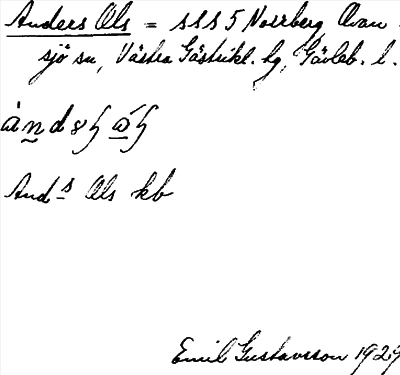 Anders Ols = s s s 5 Norrberg, Ovan-
sjö sn, Västra Gästrikl. hg, Gävleb. l.
And s Ols kb
Emil Gustavsson 1927